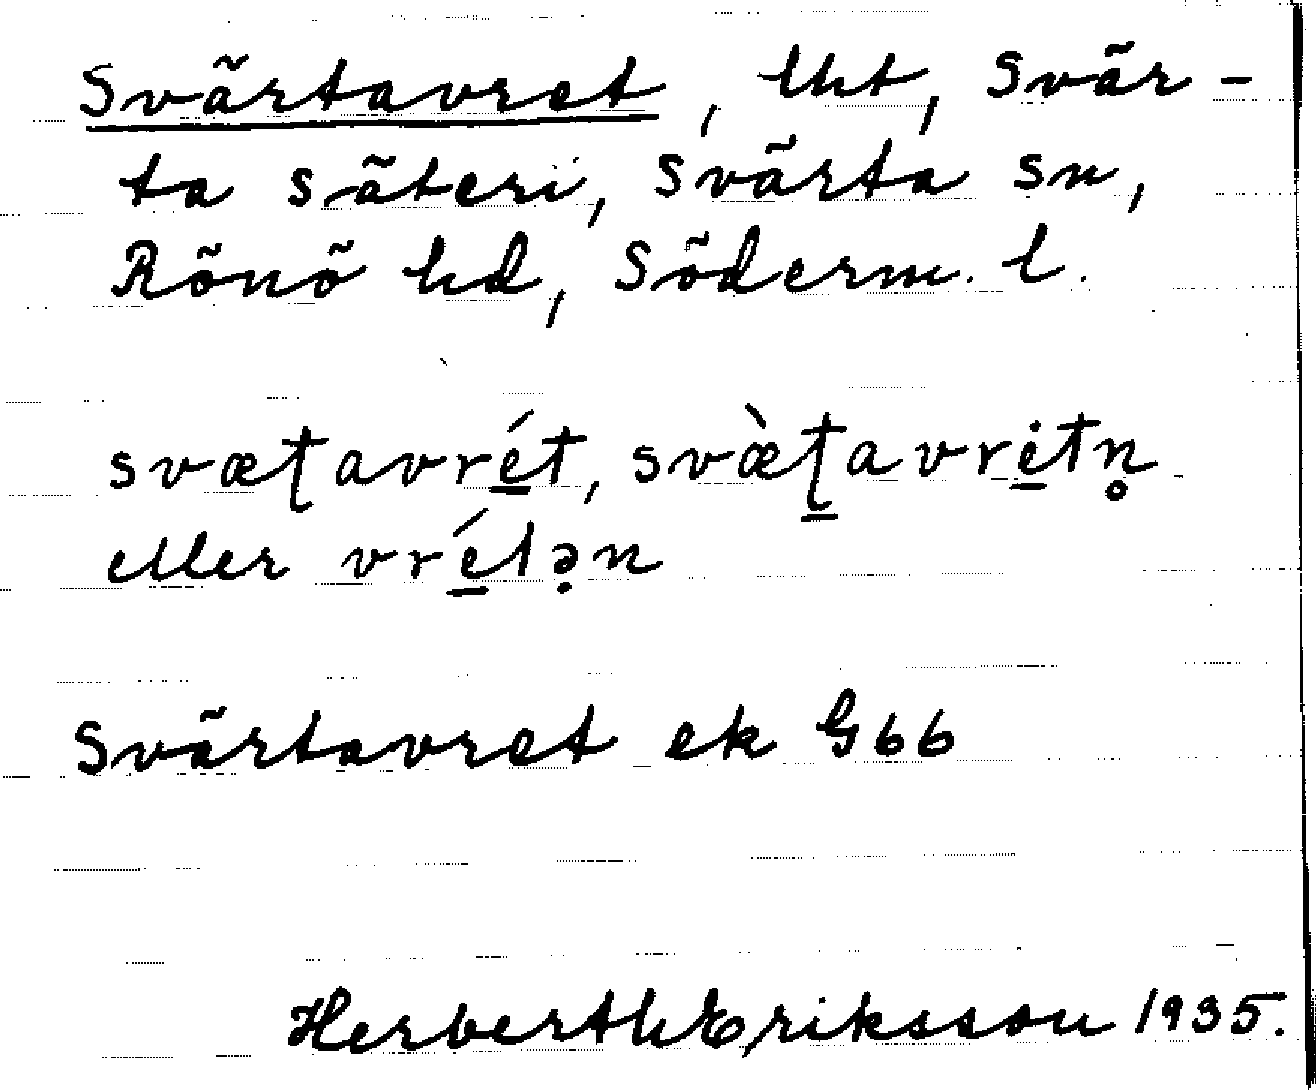 Svärtavret, lht, Svär-
ta säteri, Svärta sn,
Rönö hd, Söderm. l.
svæʈavré̠t, svæ̀ʈ̠avrė̠tn̥
eller vré̠tə̣n
Svärtavret ek G66
Herberth Eriksson 1935.